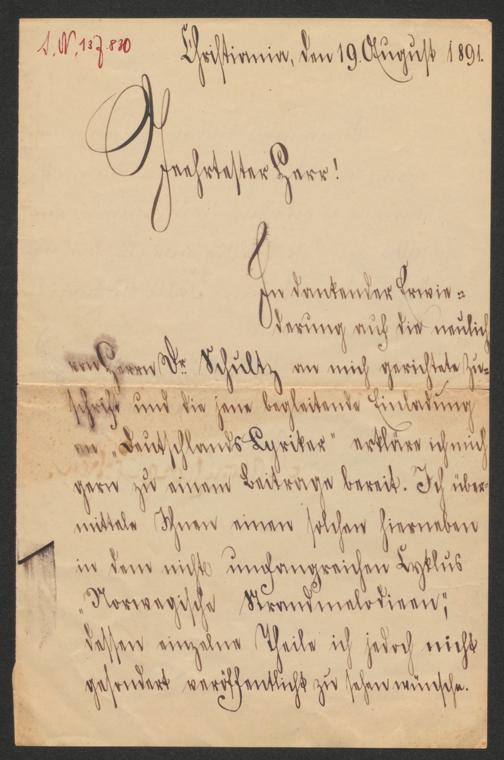 J. N. 137.830
Christiania, den 19. August 1891.
Geehrtester Herr!
In dankender Erwie=
derung auf die neulich
von Herrn Dr. Schultz an mich gerichtete Zu=
schrift und die jene begleitende Einladung
an „Deutschlands Lyriker“ erkläre ich mich
gern zu einem Beitrage bereit. Ich über=
mittele Ihnen einen solchen hierneben
in dem nicht umfangreichen Cyklus
„Norwegische Strandmelodieen“,
dessen einzelne Theile ich jedoch nicht
gesondert veröffentlicht zu sehen wünsche.